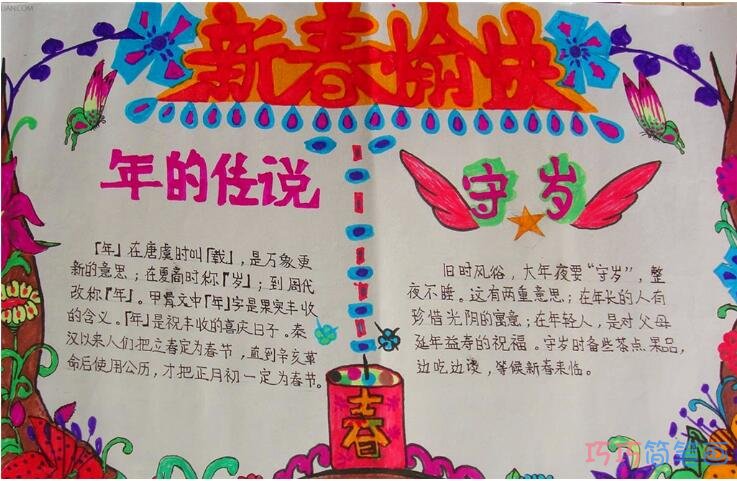 JIAN.COM
新春愉快
年的传说
「年」在唐虞时叫「载」，是万象更
新的意思；在夏商时称「岁」；到周代
改称「年」。甲骨文中「年」字是果实丰收
的含义。「年」是祝丰收的喜庆日子。秦
汉以来人们把立春定为春节，直到辛亥革
命后使用公历，才把正月初一定为春节。
守岁
旧时风俗，大年夜要“守岁”，整
夜不睡。这有两重意思；在年长的人有
珍惜光阴的寓意；在年轻人，是对父母
延年益寿的祝福。守岁时备些茶点果品，
边吃边谈，等候新春来临。
春
巧巧简笔画